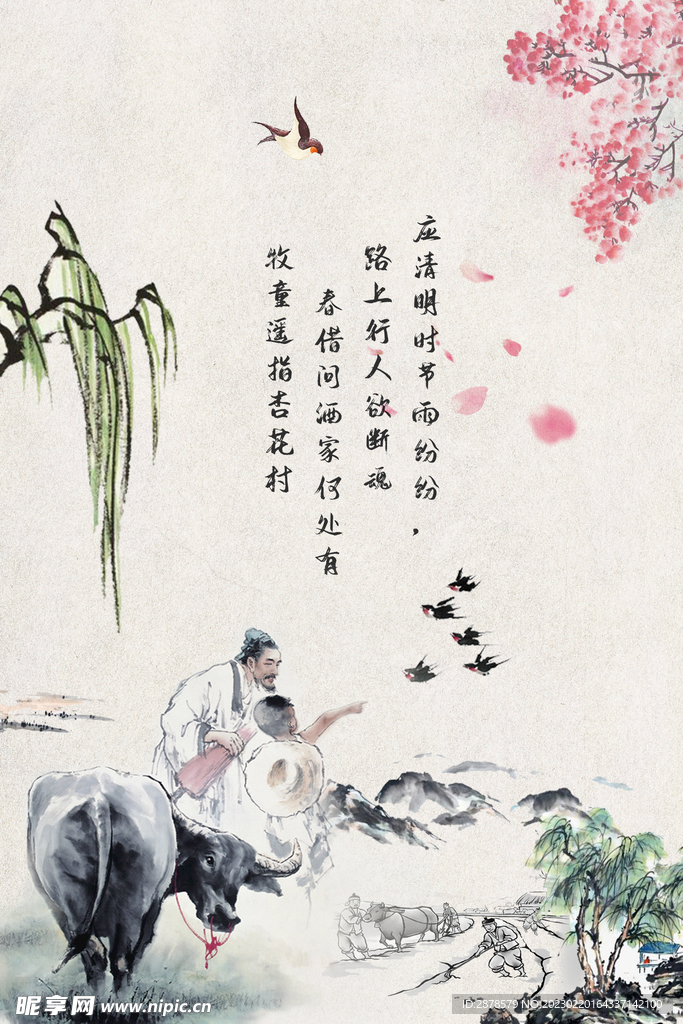 应清明时节雨纷纷，
路上行人欲断魂
春借问酒家何处有
牧童遥指杏花村
昵享网 www.nipic.cn
ID:2378579 NO:20230220164337142100